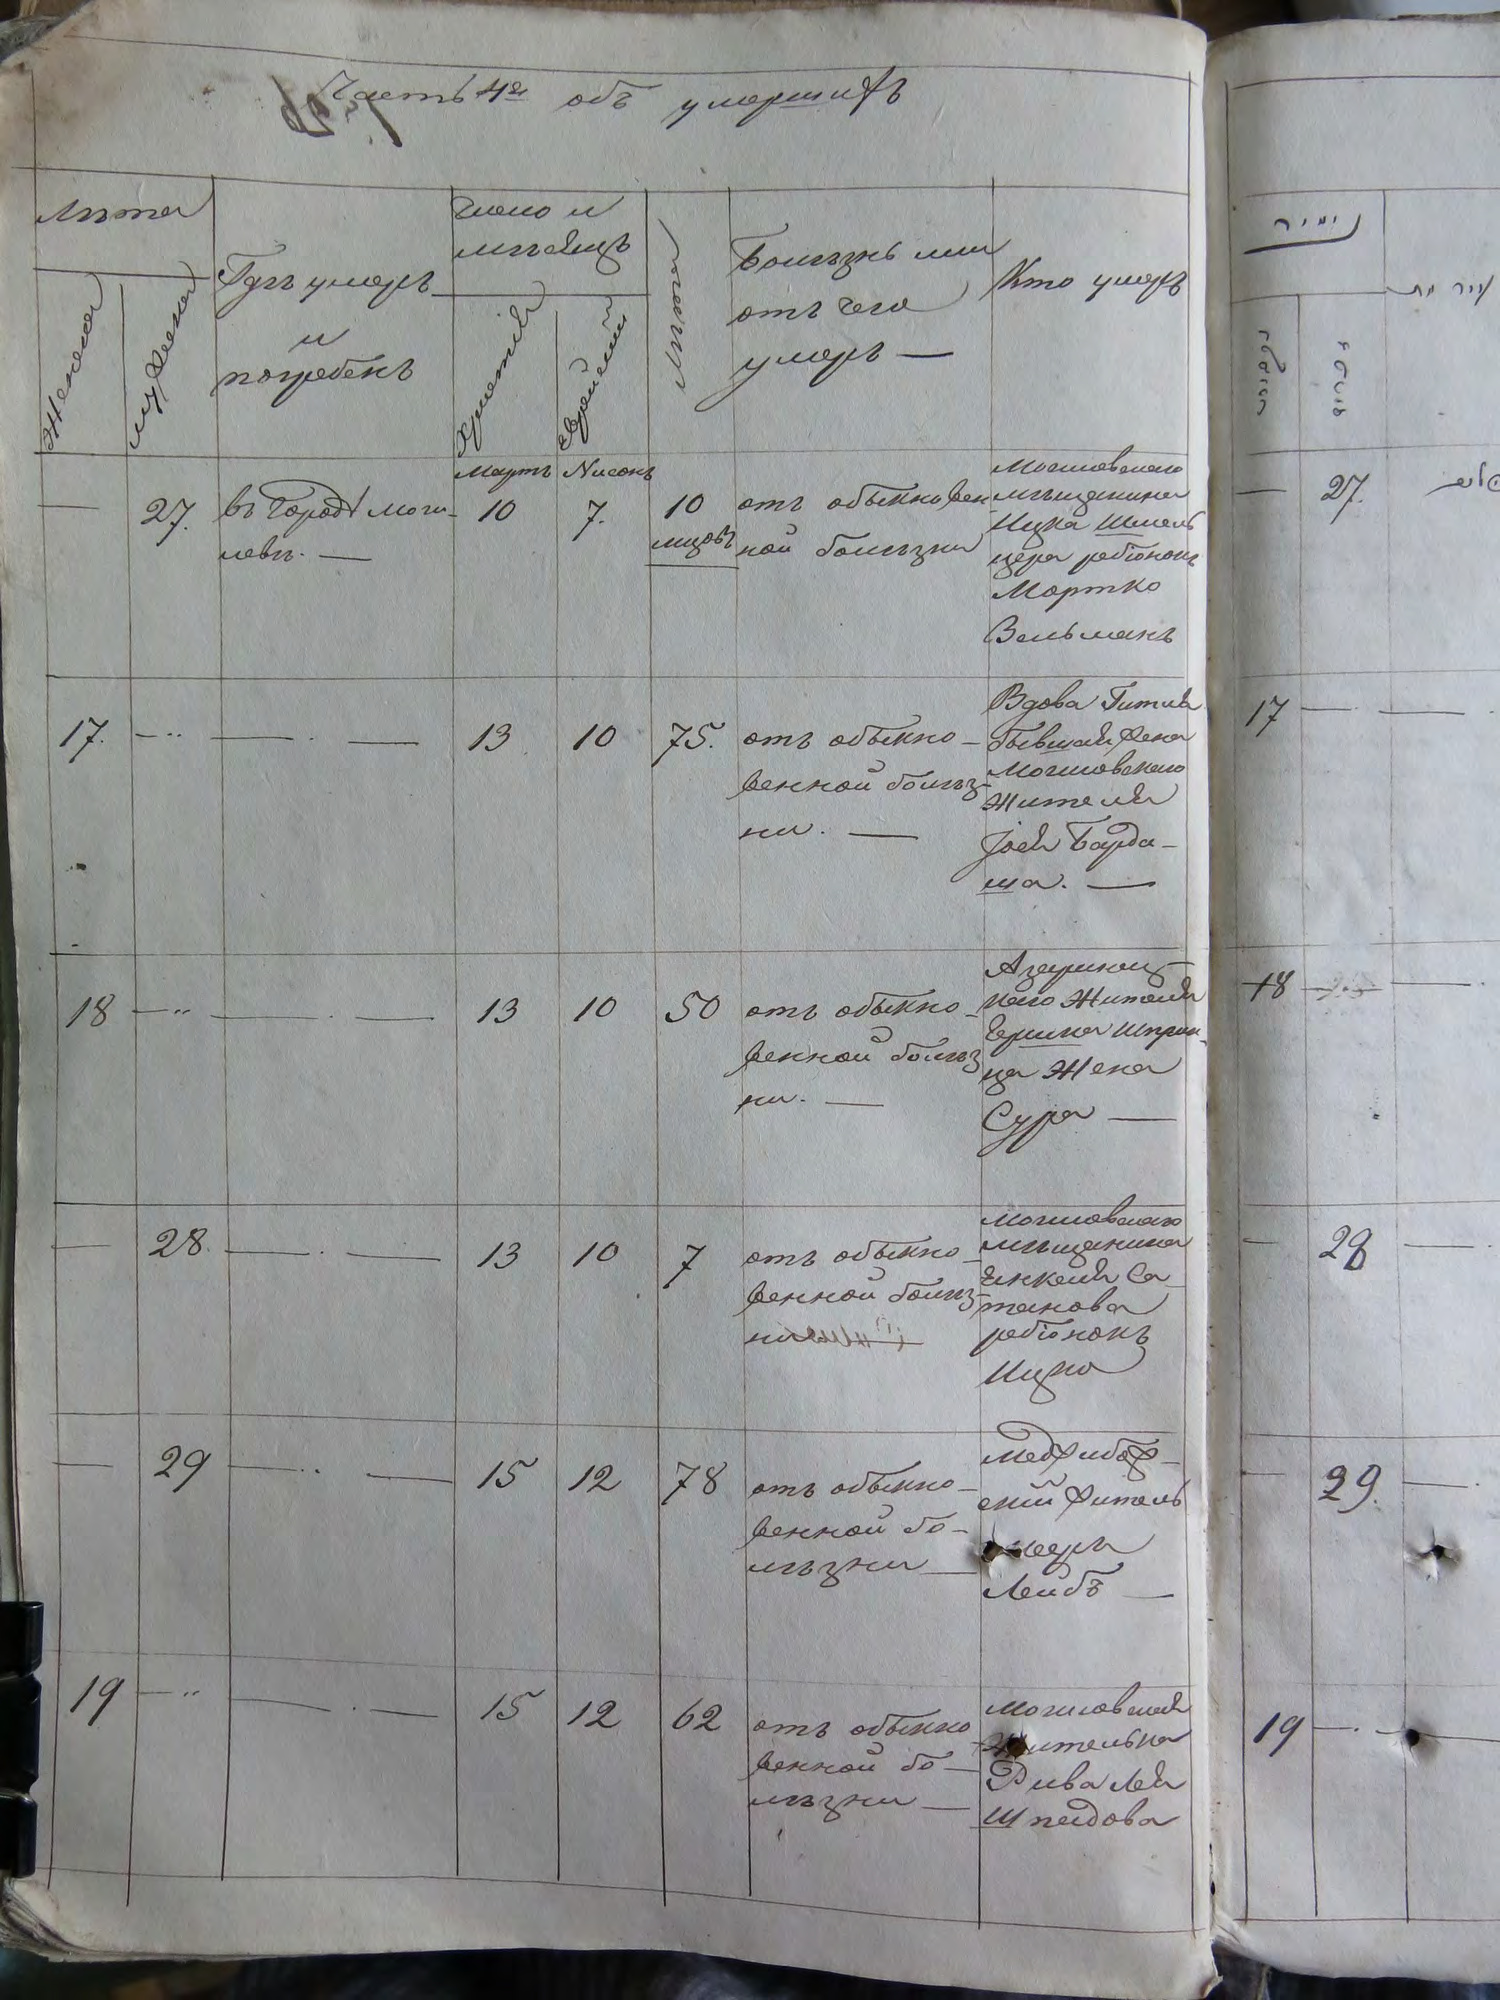 Часть 4я объ умершихъ
Лета
Женска
мужеска
Гдъ умеръ
и
погребенъ
Число и
мѣсяцъ
Христiя
Еврейский
Лета
Болѣзнь или
отъ чего
умеръ —
Кто умеръ
Мартъ Нисонъ
— 27. въ Городѣ Моги-
левѣ. — 10 7. 10
мцовъ
отъ обыкновен
ной болѣзни
Могилевскаго
мѣщанина
Ицка Шмель
цера ребіонокъ
Мортко
Вельманъ
17. 13 10 75. отъ обыкно-
венной болѣз-
ни. —
Вдова Гитля
бывшая жена
Могилевскаго
Жителя
Іося Барда-
ша. —
18 13 10 50 отъ обыкно-
венной болѣз
ни. —
Азаринец-
каго Жителя
Ершка Шприн-
ца Жена
Сура —
28. 13 10 7 отъ обыкно-
венной болѣз-
ни
Могилевскаго
мѣщанина
Енкеля Са-
танова
ребіонокъ
Ицко
29 15 12 78 отъ обыкно-
венной бо-
лѣзни —
Меджибож-
скій житель
Лейбъ —
19 15 12 62 отъ обыкно
венной бо-
лѣзни —
Могилевская
Жителька
Рива Лея
Шпейдова
27.
17
18
28
29.
19